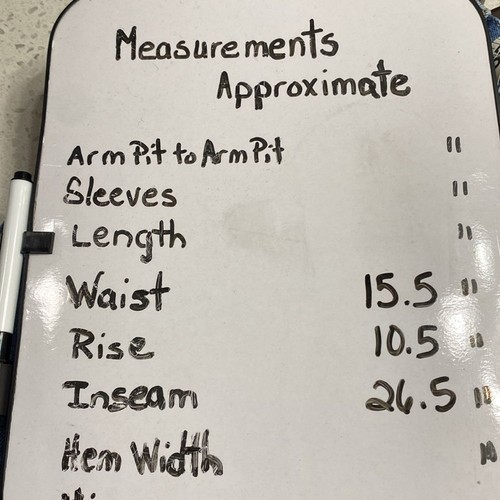 Measurements
Approximate
Arm Pit to Arm Pit "
Sleeves "
Length "
Waist 15.5 "
Rise 10.5 "
Inseam 26.5 "
Hem Width "